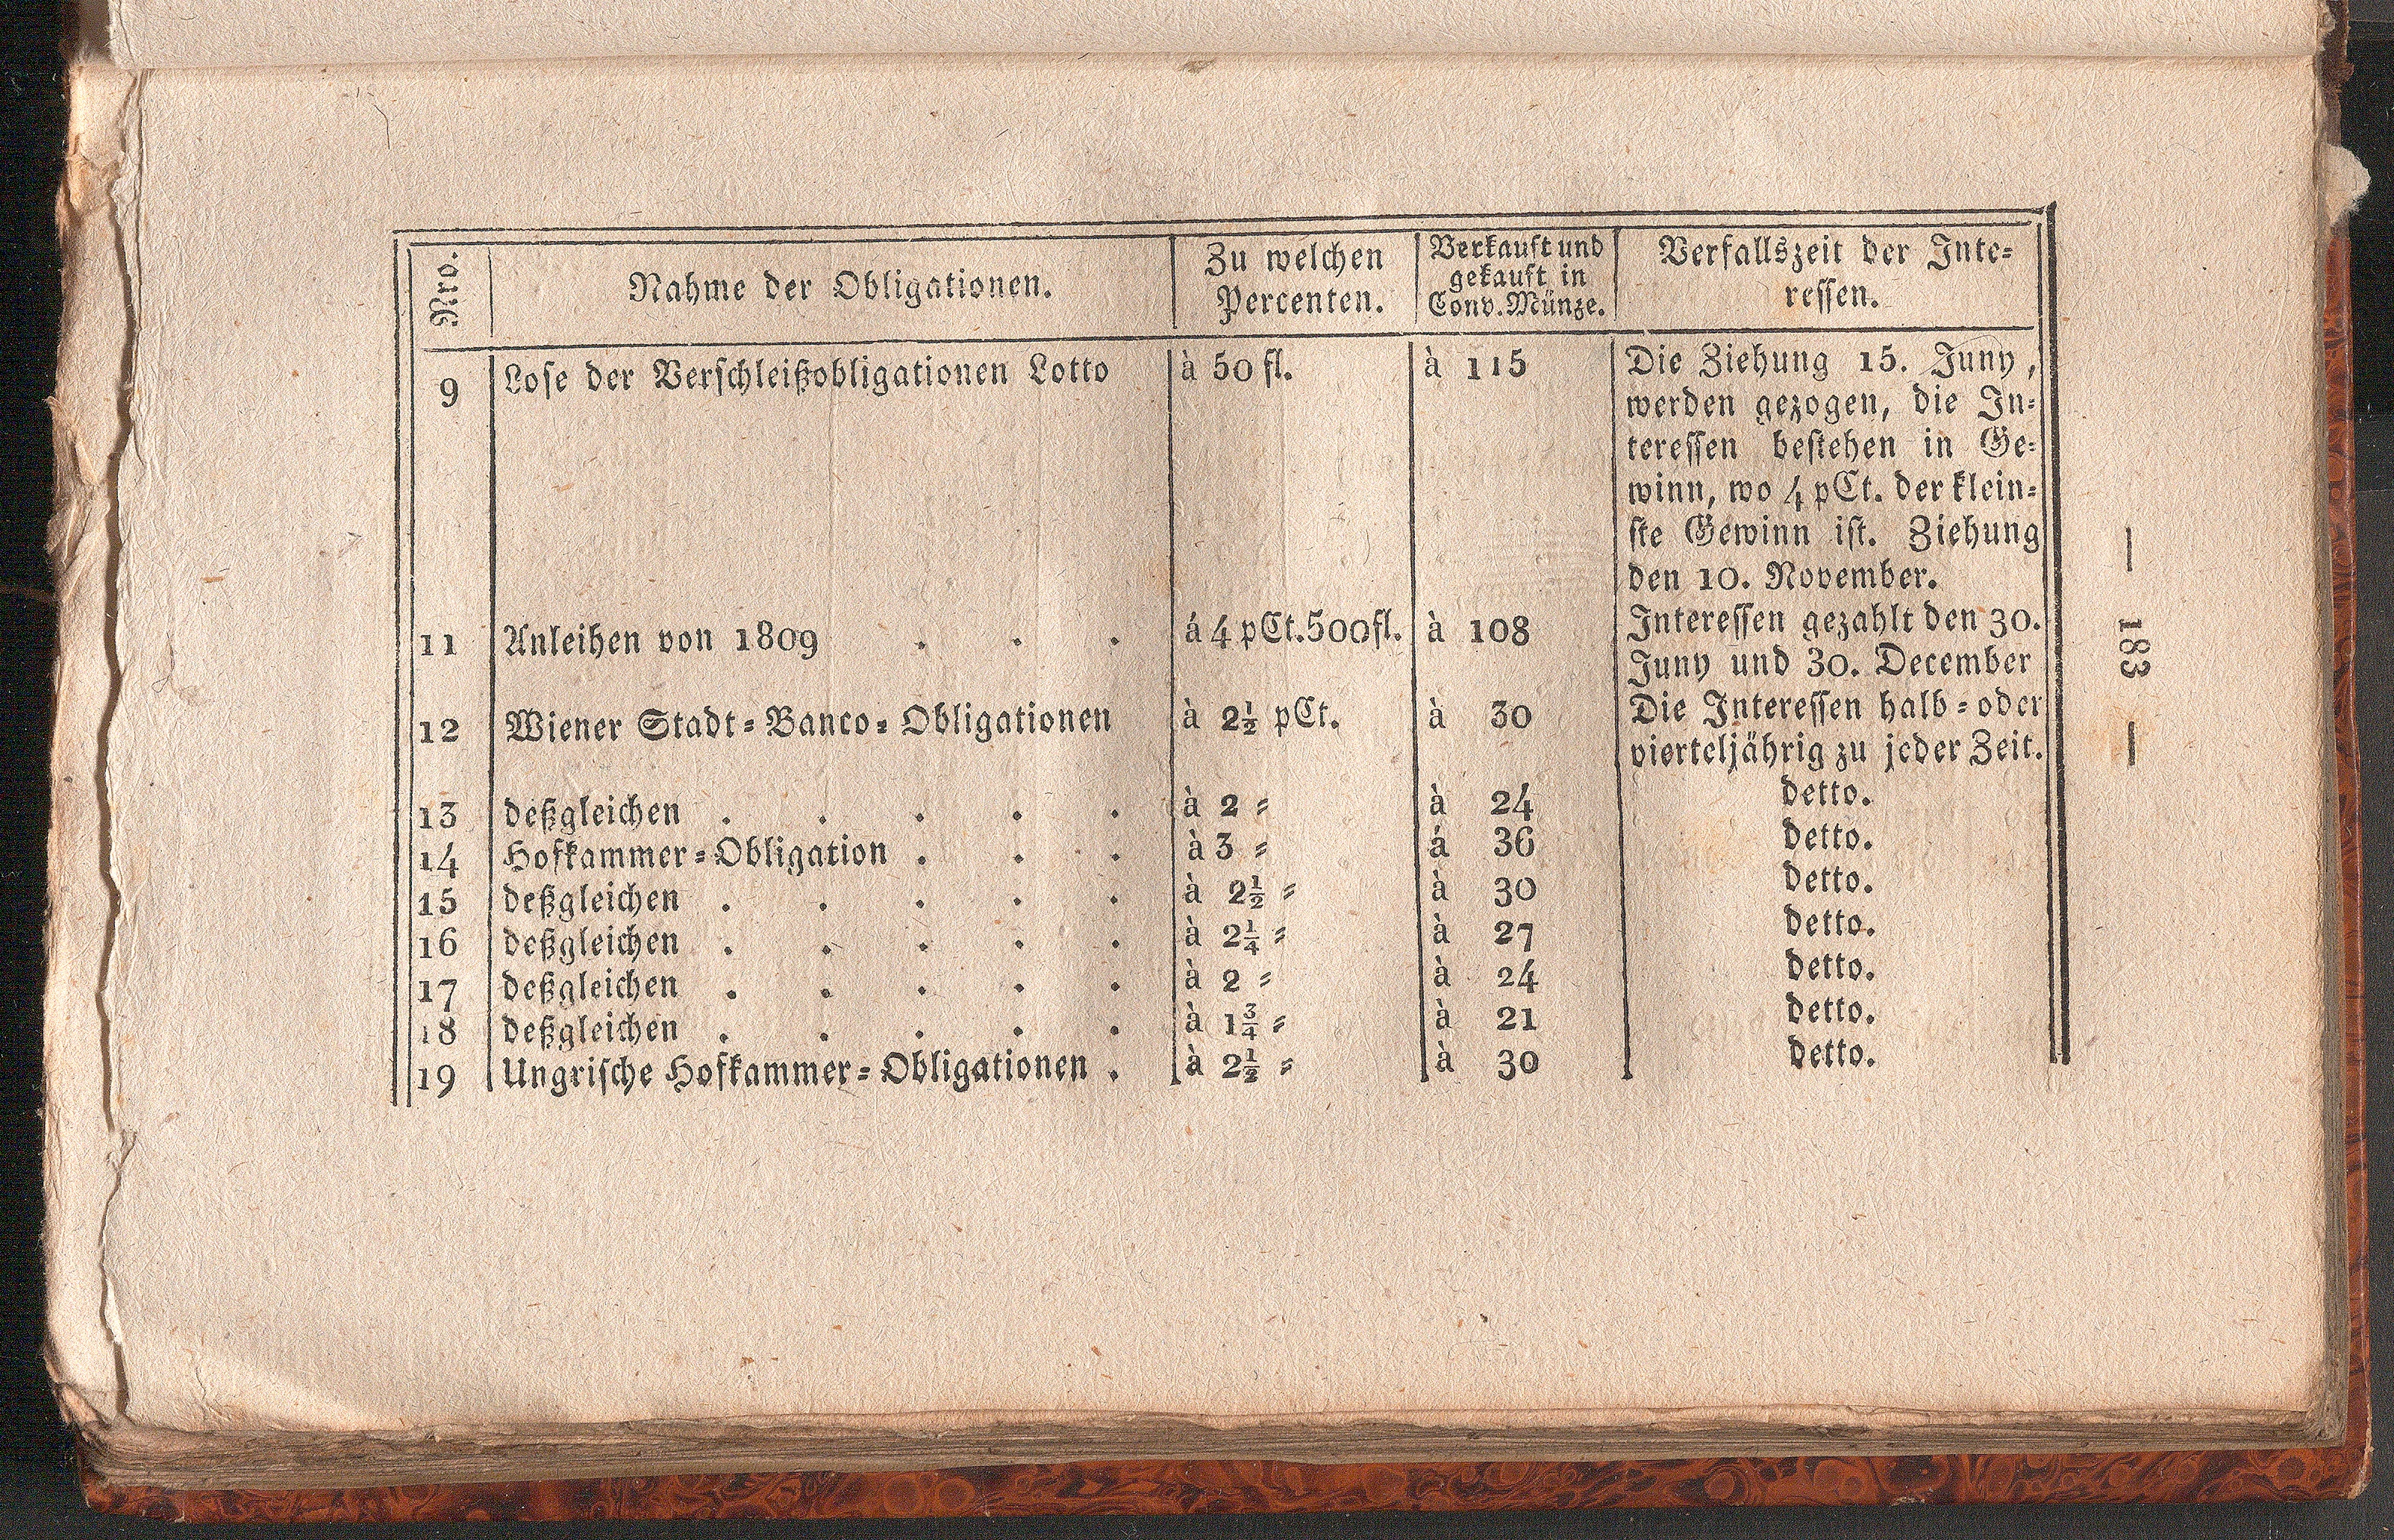 Nro.
Nahme der Obligationen.
Zu welchen
Percenten.
Verkauft und
gekauft in
Conv. Münze.
Verfallszeit der Inte=
ressen.
9 Lose der Verschleißobligationen Lotto à 50 fl. à 115 Die Ziehung 15. Juny,
werden gezogen, die In=
teressen bestehen in Ge=
winn, wo 4 pCt. der klein=
ste Gewinn ist. Ziehung
den 10. November.
11 Anleihen von 1809 . . . á 4 pCt. 500 fl. à 108 Interessen gezahlt den 30.
Juny und 30. December
12 Wiener Stadt=Banco=Obligationen à 2½ pCt. à 30 Die Interessen halb=oder
vierteljährig zu jeder Zeit.
13 deßgleichen . . . . . à 2 = à 24 detto.
14 Hofkammer=Obligation . . . à 3 = á 36 detto.
15 deßgleichen . . . . . à 2½ = à 30 detto.
16 deßgleichen . . . . . à 2¼ = à 27 detto.
17 deßgleichen . . . . . à 2 = à 24 detto.
18 deßgleichen . . . . . à 1¾ = à 21 detto.
19 Ungrische Hofkammer=Obligationen . à 2½ = à 30 detto.
— 183 —